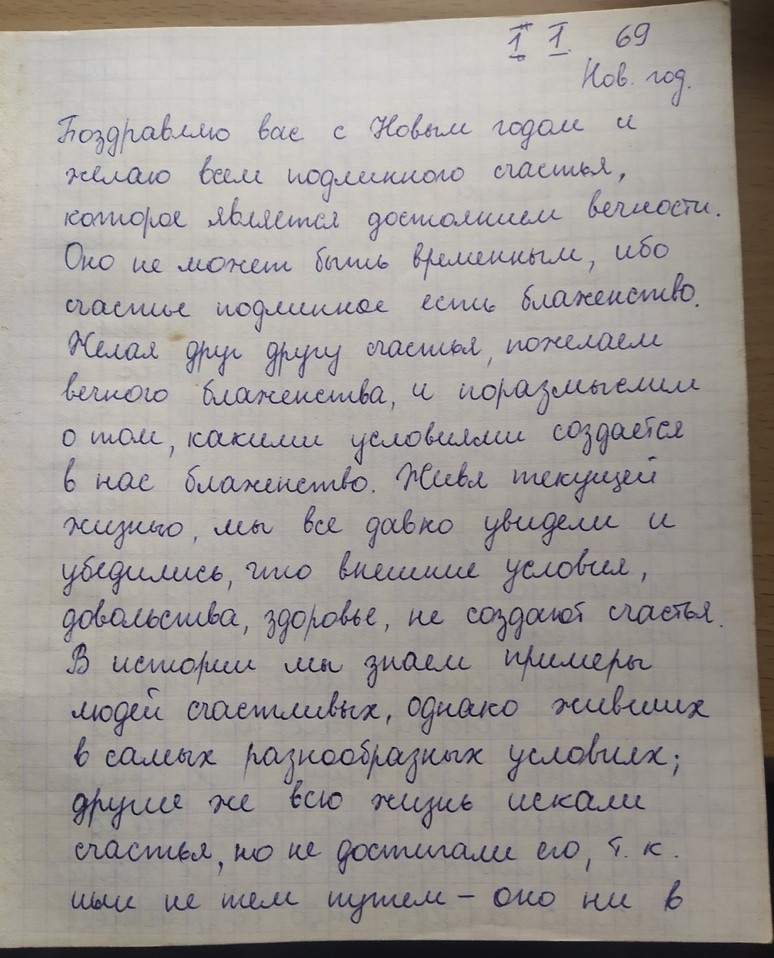 I I 69
Нов. год.
Поздравляю вас с Новым годом и
желаю всем подлинного счастья,
которое является достоянием вечности.
Оно не может быть временным, ибо
счастье подлинное есть блаженство.
Желая друг другу счастья, пожелаем
вечного блаженства, и поразмыслим
о том, какими условиями создается
в нас блаженство. Живя текущей
жизнью, мы все давно увидели и
убедились, что внешние условия,
довольства, здоровье, не создают счастья.
В истории мы знаем примеры
людей счастливых, однако живших
в самых разнообразных условиях;
другие же всю жизнь искали
счастья, но не достигали его, т. к.
шли не тем путем – оно ни в